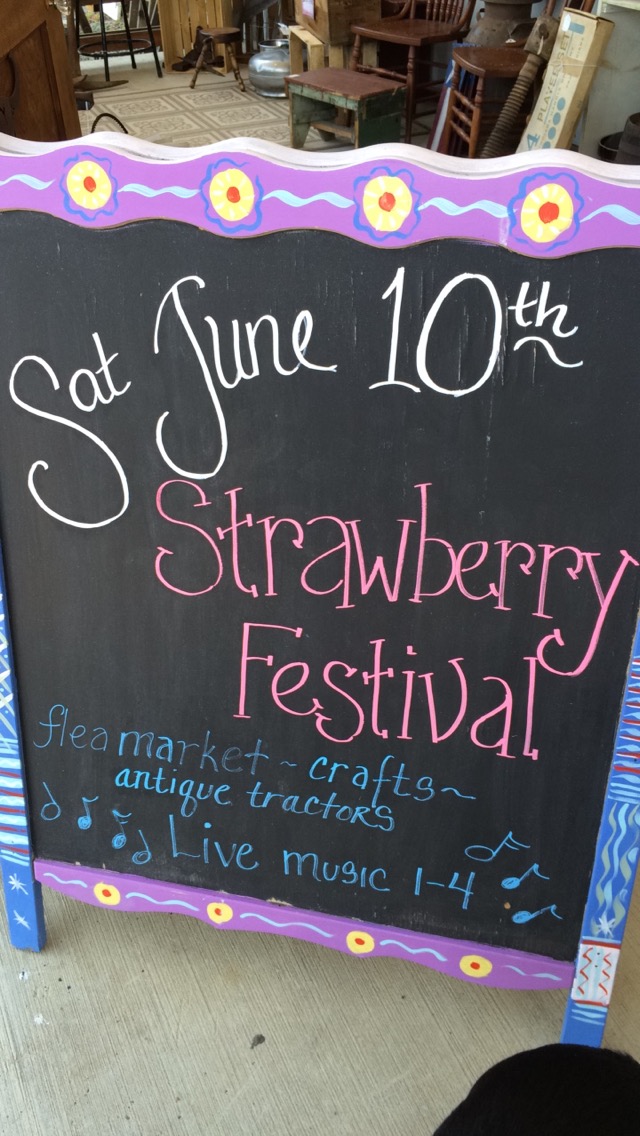 4 PLAYER
Sat June 10th
Strawberry
Festival
flea market ~ crafts ~
antique tractors
Live music 1-4